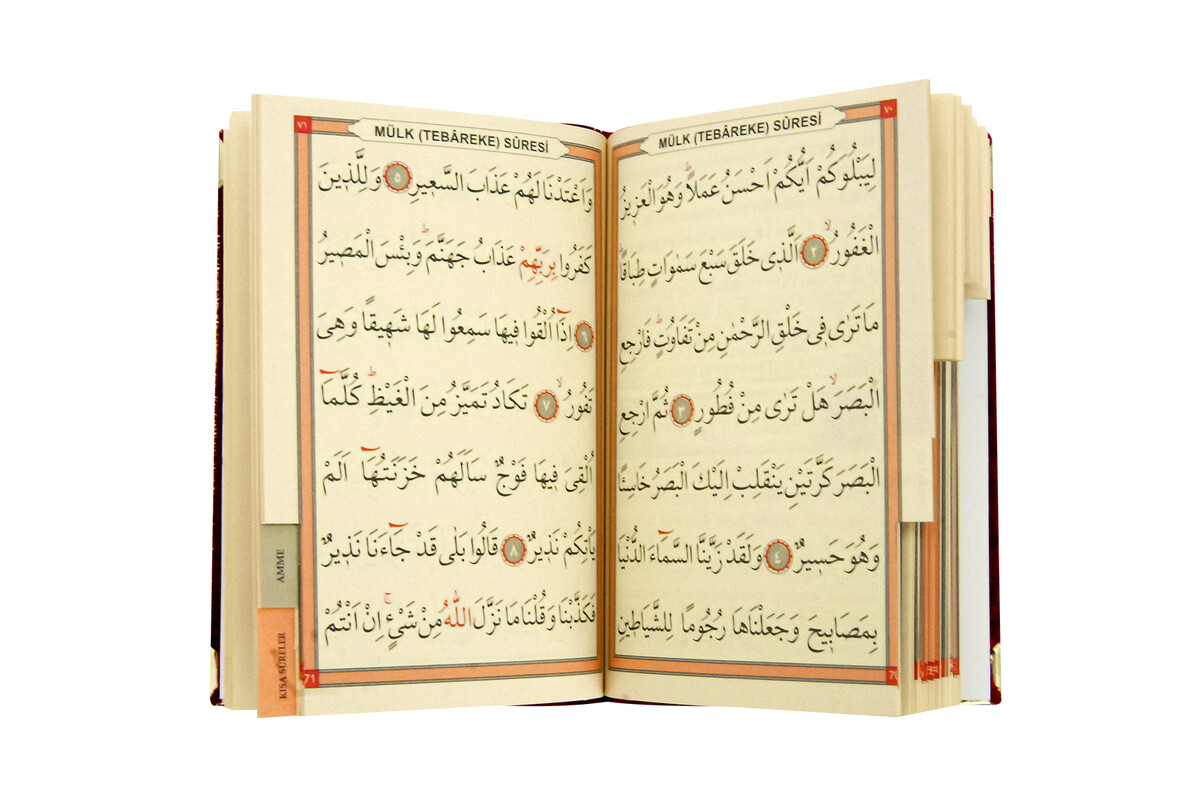 ٧٠
MÜLK (TEBÂREKE) SÛRESİ
لِيَبْلُوَكُمْ اَيُّكُمْ اَحْسَنُ عَمَلًاۜ وَهُوَ الْعَز۪يزُ
الْغَفُورُۙ ﴿٢﴾ اَلَّذ۪ي خَلَقَ سَبْعَ سَمٰوَاتٍ طِبَاقًاۜ
مَا تَرٰى ف۪ي خَلْقِ الرَّحْمٰنِ مِنْ تَفَاوُتٍۜ فَارْجِعِ
الْبَصَرَۙ هَلْ تَرٰى مِنْ فُطُورٍ ﴿٣﴾ ثُمَّ ارْجِعِ
الْبَصَرَ كَرَّتَيْنِ يَنْقَلِبْ اِلَيْكَ الْبَصَرُ خَاسِئًا
وَهُوَ حَس۪يرٌ ﴿٤﴾ وَلَقَدْ زَيَّنَّا السَّمَٓاءَ الدُّنْيَا
بِمَصَاب۪يحَ وَجَعَلْنَاهَا رُجُومًا لِلشَّيَاط۪ينِ
70
٧١
MÜLK (TEBÂREKE) SÛRESİ
وَاَعْتَدْنَا لَهُمْ عَذَابَ السَّع۪يرِ ﴿٥﴾ وَلِلَّذ۪ينَ
كَفَرُوا بِرَبِّهِمْ عَذَابُ جَهَنَّمَۜ وَبِئْسَ الْمَص۪يرُ
﴿٦﴾ اِذَٓا اُلْقُوا ف۪يهَا سَمِعُوا لَهَا شَه۪يقًا وَهِيَ
تَفُورُۙ ﴿٧﴾ تَكَادُ تَمَيَّزُ مِنَ الْغَيْظِۜ كُلَّمَٓا
اُلْقِيَ ف۪يهَا فَوْجٌ سَاَلَهُمْ خَزَنَتُهَٓا اَلَمْ
يَاْتِكُمْ نَذ۪يرٌ ﴿٨﴾ قَالُوا بَلٰى قَدْ جَٓاءَنَا نَذ۪يرٌ
فَكَذَّبْنَا وَقُلْنَا مَا نَزَّلَ اللّٰهُ مِنْ شَيْءٍۚ اِنْ اَنْتُمْ
71
AMME
KISA SÛRELER